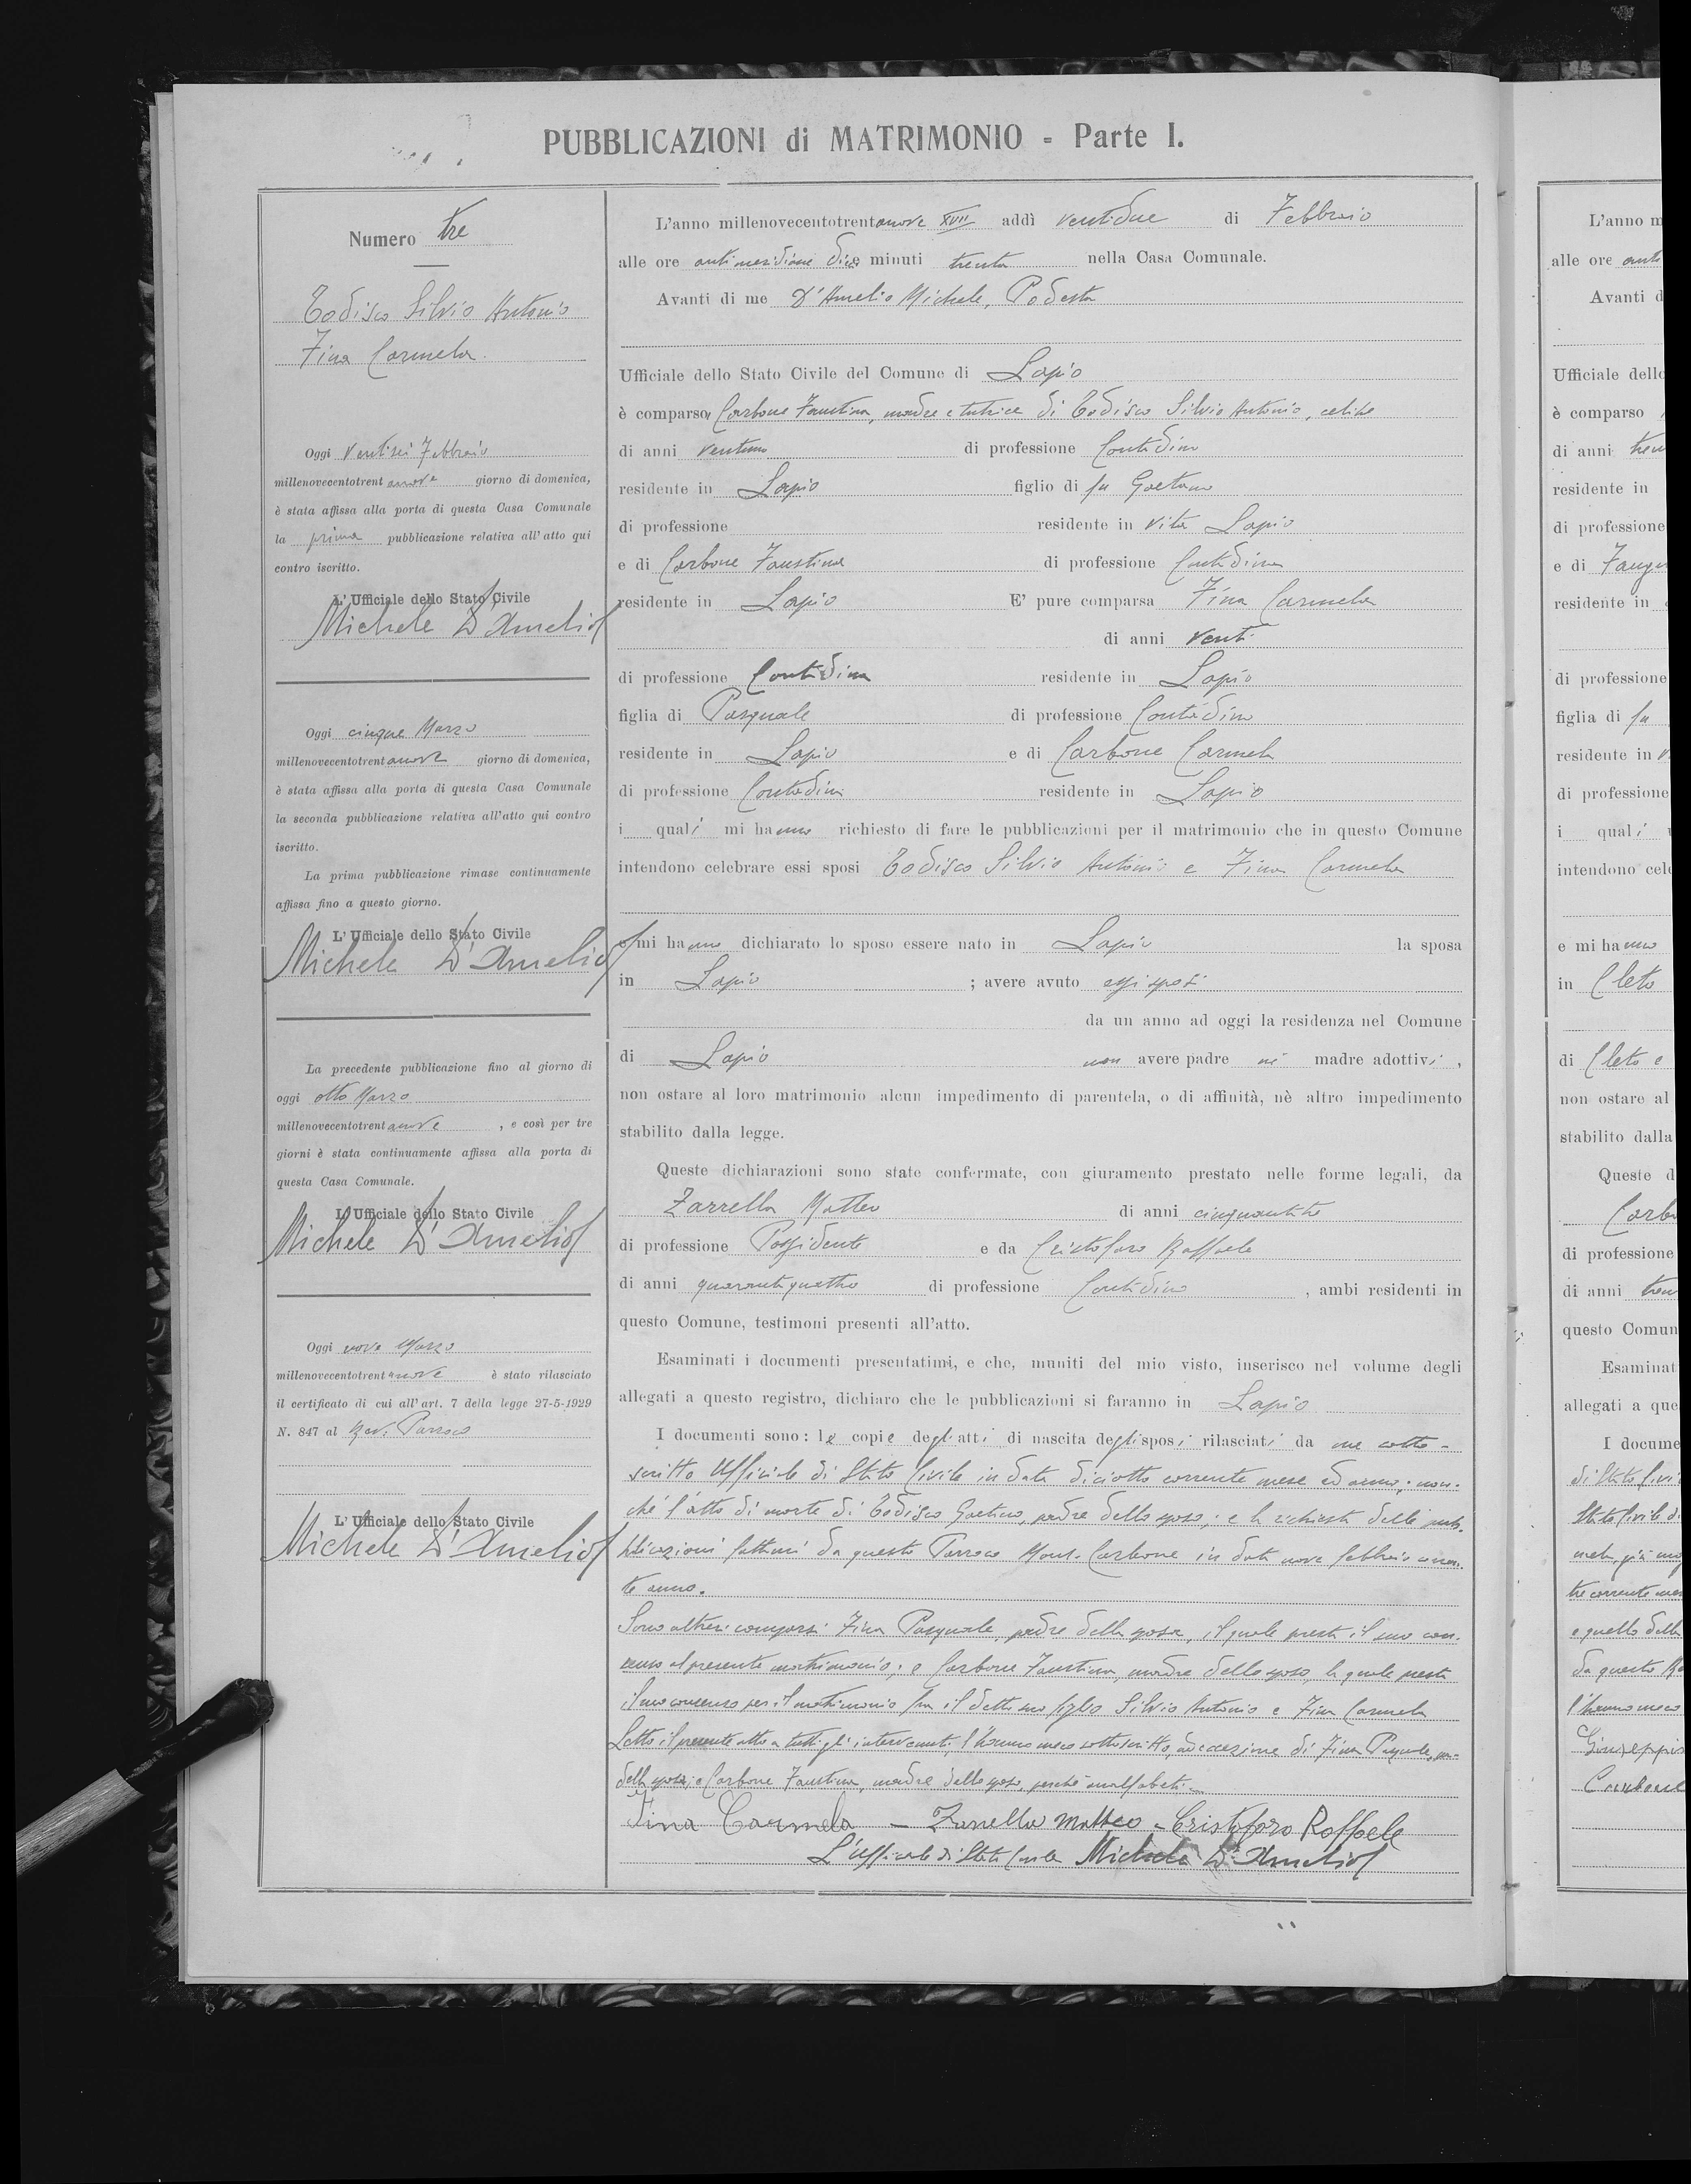 PUBBLICAZIONI di MATRIMONIO - Parte I.
Numero tre
Todisco Silvio Antonio
Fina Carmela
Oggi ventisei Febbraio
millenovecentotrentanove giorno di domenica,
è stata affissa alla porta di questa Casa Comunale
la prima pubblicazione relativa all'atto qui
contro iscritto.
L'Ufficiale dello Stato Civile
Michele D'Amelio
Oggi cinque Marzo
millenovecentotrentanove giorno di domenica,
è stata affissa alla porta di questa Casa Comunale
la seconda pubblicazione relativa all'atto qui contro
iscritto.
La prima pubblicazione rimase continuamente
affissa fino a questo giorno.
L'Ufficiale dello Stato Civile
Michele D'Amelio
La precedente pubblicazione fino al giorno di
oggi otto Marzo
millenovecentotrentanove, e così per tre
giorni è stata continuamente affissa alla porta di
questa Casa Comunale.
L'Ufficiale dello Stato Civile
Michele D'Amelio
Oggi nove Marzo
millenovecentotrentanove è stato rilasciato
il certificato di cui all'art. 7 della legge 27-5-1929
N. 847 al Rev. Parroco
L'Ufficiale dello Stato Civile
Michele D'Amelio
L'anno millenovecentotrentanove XVII addì ventidue di Febbraio
alle ore antimeridiane dieci minuti trenta nella Casa Comunale.
Avanti di me D'Amelio Michele, Podestà
Ufficiale dello Stato Civile del Comune di Lapio
è comparsa Carbone Faustina, madre e tutrice di Todisco Silvio Antonio, celibe
di anni ventuno di professione Contadino
residente in Lapio figlio di fu Gaetano
di professione residente in vita Lapio
e di Carbone Faustina di professione Contadina
residente in Lapio E' pure comparsa Fina Carmela
di anni venti
di professione Contadina residente in Lapio
figlia di Pasquale di professione Contadino
residente in Lapio e di Carbone Carmela
di professione Contadina residente in Lapio
i quali mi hanno richiesto di fare le pubblicazioni per il matrimonio che in questo Comune
intendono celebrare essi sposi Todisco Silvio Antonio e Fina Carmela
e mi hanno dichiarato lo sposo essere nato in Lapio la sposa
in Lapio ; avere avuto essi sposi
da un anno ad oggi la residenza nel Comune
di Lapio non avere padre nè madre adottivi,
non ostare al loro matrimonio alcun impedimento di parentela, o di affinità, nè altro impedimento
stabilito dalla legge.
Queste dichiarazioni sono state confermate, con giuramento prestato nelle forme legali, da
Zarrella Matteo di anni cinquantatre
di professione Possidente e da Cristofaro Raffaele
di anni quarantaquattro di professione Contadino, ambi residenti in
questo Comune, testimoni presenti all'atto.
Esaminati i documenti presentatimi, e che, muniti del mio visto, inserisco nel volume degli
allegati a questo registro, dichiaro che le pubblicazioni si faranno in Lapio
I documenti sono: le copie degli atti di nascita degli sposi rilasciati da me sotto-
scritto Ufficiale di Stato Civile in data diciotto corrente mese ed anno; non-
chè l'atto di morte di Todisco Gaetano, padre dello sposo; e la richiesta delle pub-
blicazioni fattami da questo Parroco Mons. Carbone in data nove febbraio corren-
te anno.
Sono altresì comparsi Fina Pasquale, padre della sposa, il quale presta il suo con-
senso al presente matrimonio; e Carbone Faustina, madre dello sposo, la quale presta
il suo consenso per il matrimonio fra il detto suo figlio Silvio Antonio e Fina Carmela
Letto il presente atto a tutti gli intervenuti, l'hanno meco sottoscritto, ad eccezione di Fina Pasquale,
della sposa, e Carbone Faustina, madre dello sposo, perchè analfabeti.
Fina Carmela - Zarrella Matteo - Cristofaro Raffaele
L'Ufficiale di Stato Civile Michele D'Amelio
L'anno m
alle ore anti
Avanti d
Ufficiale dello
è comparso
di anni tren
residente in
di professione
e di
residente in
di professione
figlia di fu
residente in
di professione
i quali
intendono cele
e mi hanno
in Cleto
di Cleto e
non ostare al
stabilito dalla
Queste d
Carbo
di professione
di anni tren
questo Comun
Esaminat
allegati a que
I docume
di Stato Civi
Stato Civile di
tre corrente me
e quello della
da questo
l'hanno meco
Giuseppi
Carbone